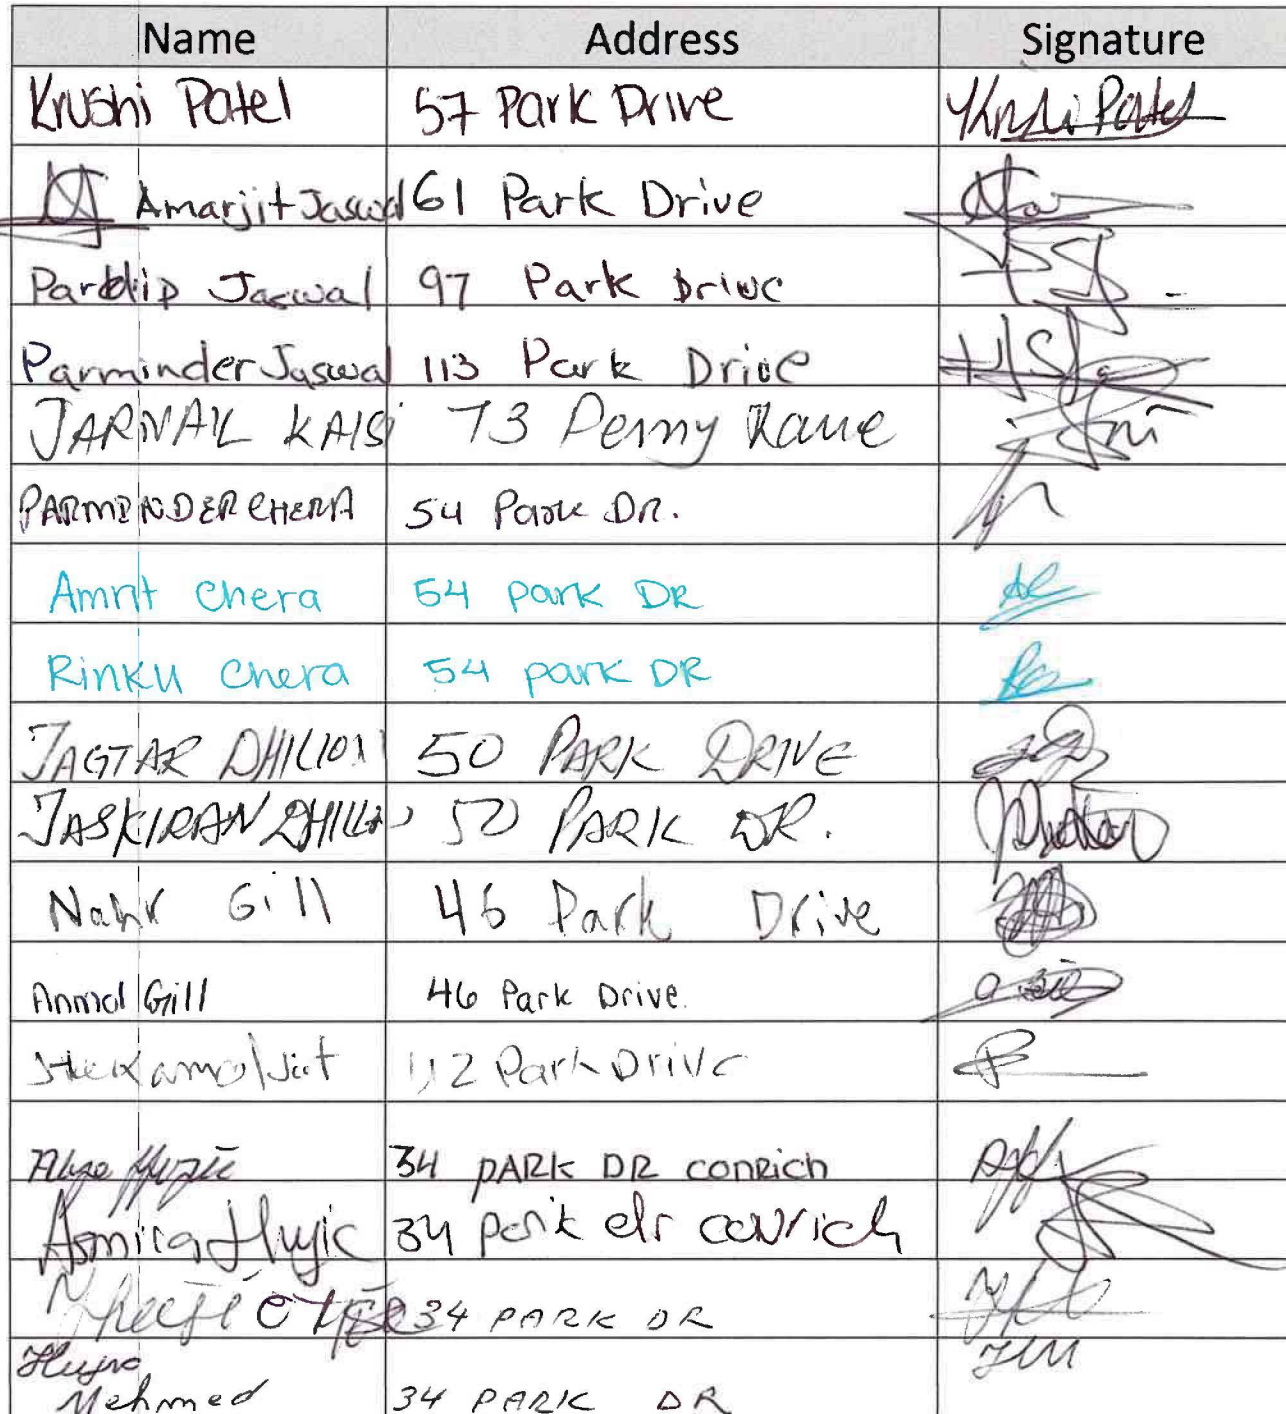 Name Address Signature
Krushi Patel 57 Park Drive Krushi Patel
Amarjit Jaswal 61 Park Drive
Pardip Jaswal 97 Park Drive
Parminder Jaswal 113 Park Drive
JARNAIL KAISI 73 Penny Lane
PARMINDER CHERA 54 Park DR.
Amrit Chera 54 park DR
Rinku Chera 54 park DR
JAGTAR DHILLON 50 PARK DRIVE
JASKIRAN DHILLON 50 PARK DR.
Gill 46 Park Drive
Anmol Gill 46 Park Drive.
112 Park Drive
34 PARK DR CONRICH
Asmira Hujic 34 park dr conrich
34 PARK DR
Mehmed 34 PARK DR